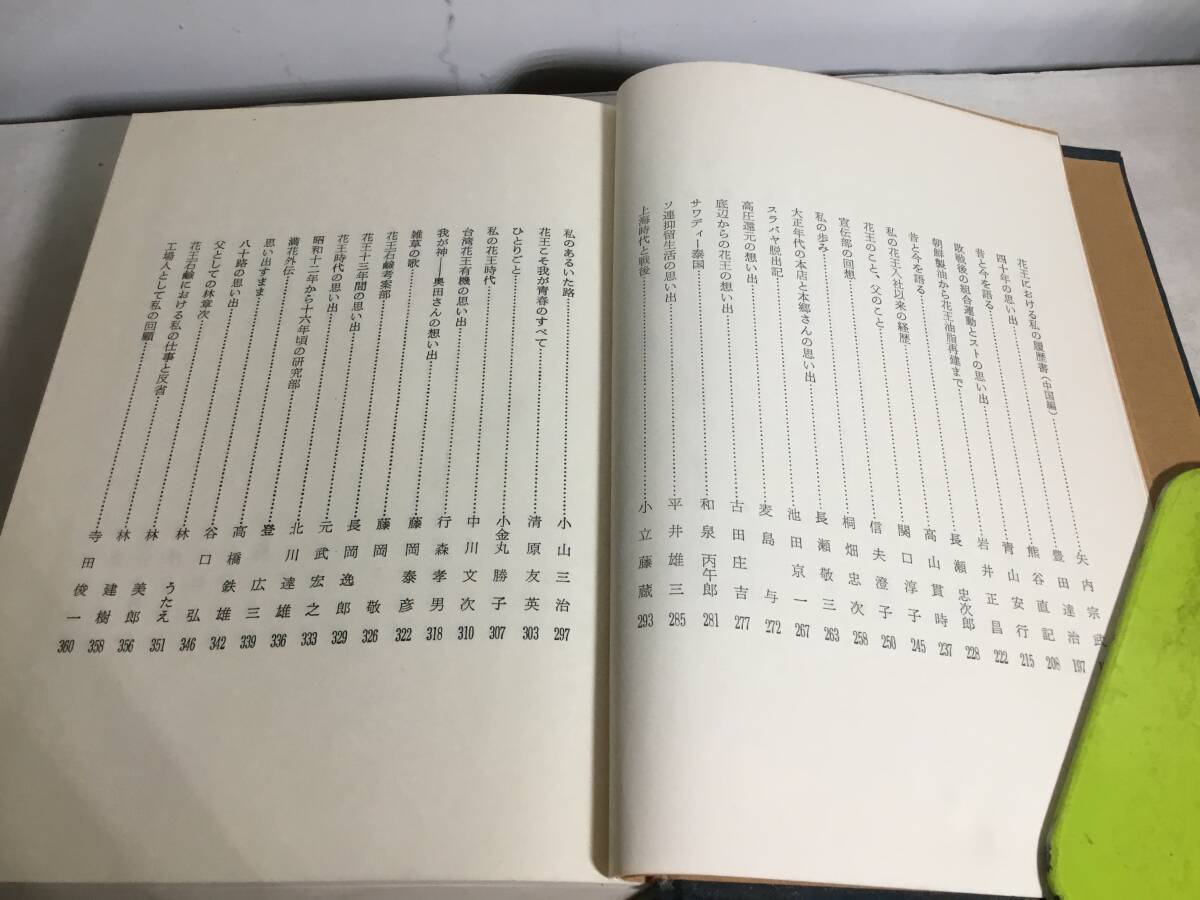 花王における私の履歴書（中国編）……矢内宗武
四十年の思い出……豊田達治 197
昔と今を語る……熊谷直記 208
敗戦後の組合運動とストの思い出……青山安行 215
朝鮮製油から花王油脂再建まで……岩井正昌 222
昔と今を語る……長瀬忠次郎 228
私の花王入社以来の経歴……高山貫時 237
花王のこと、父のこと……関口淳子 245
宣伝部の回想……信夫澄子 250
私の歩み……桐畑忠次 258
大正年代の本店と本郷さんの思い出……長瀬敬三 263
スラバヤ脱出記……池田京一 267
高圧還元の想い出……麦島与 272
底辺からの花王の想い出……古田庄吉 277
サワディー泰国……和泉丙午郎 281
ソ連抑留生活の思い出……平井雄三 285
上海時代と戦後……小立藤蔵 293
私のあるいた路……小山三治 297
花王こそ我が青春のすべて……清原友英 303
ひとりごと……小金丸勝子 307
私の花王時代……中川文次 310
台湾花王有機の思い出……行森孝男 318
我が神──奥田さんの想い出……藤岡泰彦 322
雑草の歌……藤岡敬 326
花王石鹸考案部……長岡逸郎 329
花王十三年間の思い出……元武宏之 333
花王時代の思い出……北川達雄 336
昭和十二年から十六年頃の研究部……登広三 339
満花外伝……高橋鉄雄 342
思い出すまま……谷口弘 346
八十路の思い出……林うたえ 351
父としての林章次……林美郎 356
花王石鹸における私の仕事と反省……林建樹 358
工場人として私の回顧……寺田俊一 360